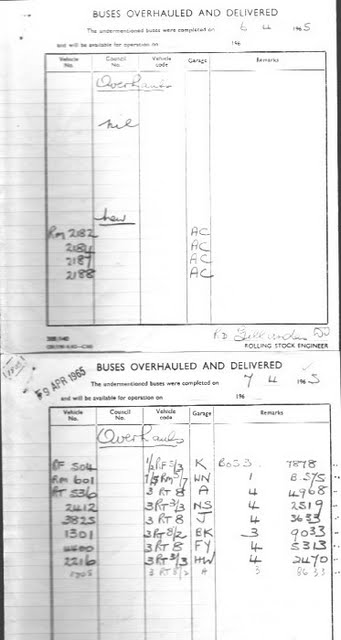 BUSES OVERHAULED AND DELIVERED
The undermentioned buses were completed on 6 4 1965
and will be available for operation on 196
Vehicle No. Council No. Vehicle code Garage Remarks
Overhauls
nil
new
RM 2182 AC
2184 AC
2187 AC
2188 AC
ROLLING STOCK ENGINEER
9 APR 1965
BUSES OVERHAULED AND DELIVERED
The undermentioned buses were completed on 7 4 1965
and will be available for operation on 196
Vehicle No. Council No. Vehicle code Garage Remarks
Overhauls
RF 504 K 7878
RM 601 WN 1 8575
RT 536 3 RT 8 A 4 4968
2412 3 RT 3/3 NS 4 2519
3825 3 RT 8 J 4 3633
1301 3 RT 8/2 BK 3 9033
4400 3 RT 8 FY 4 5313
2216 3 RT 3/3 HW 4 2470